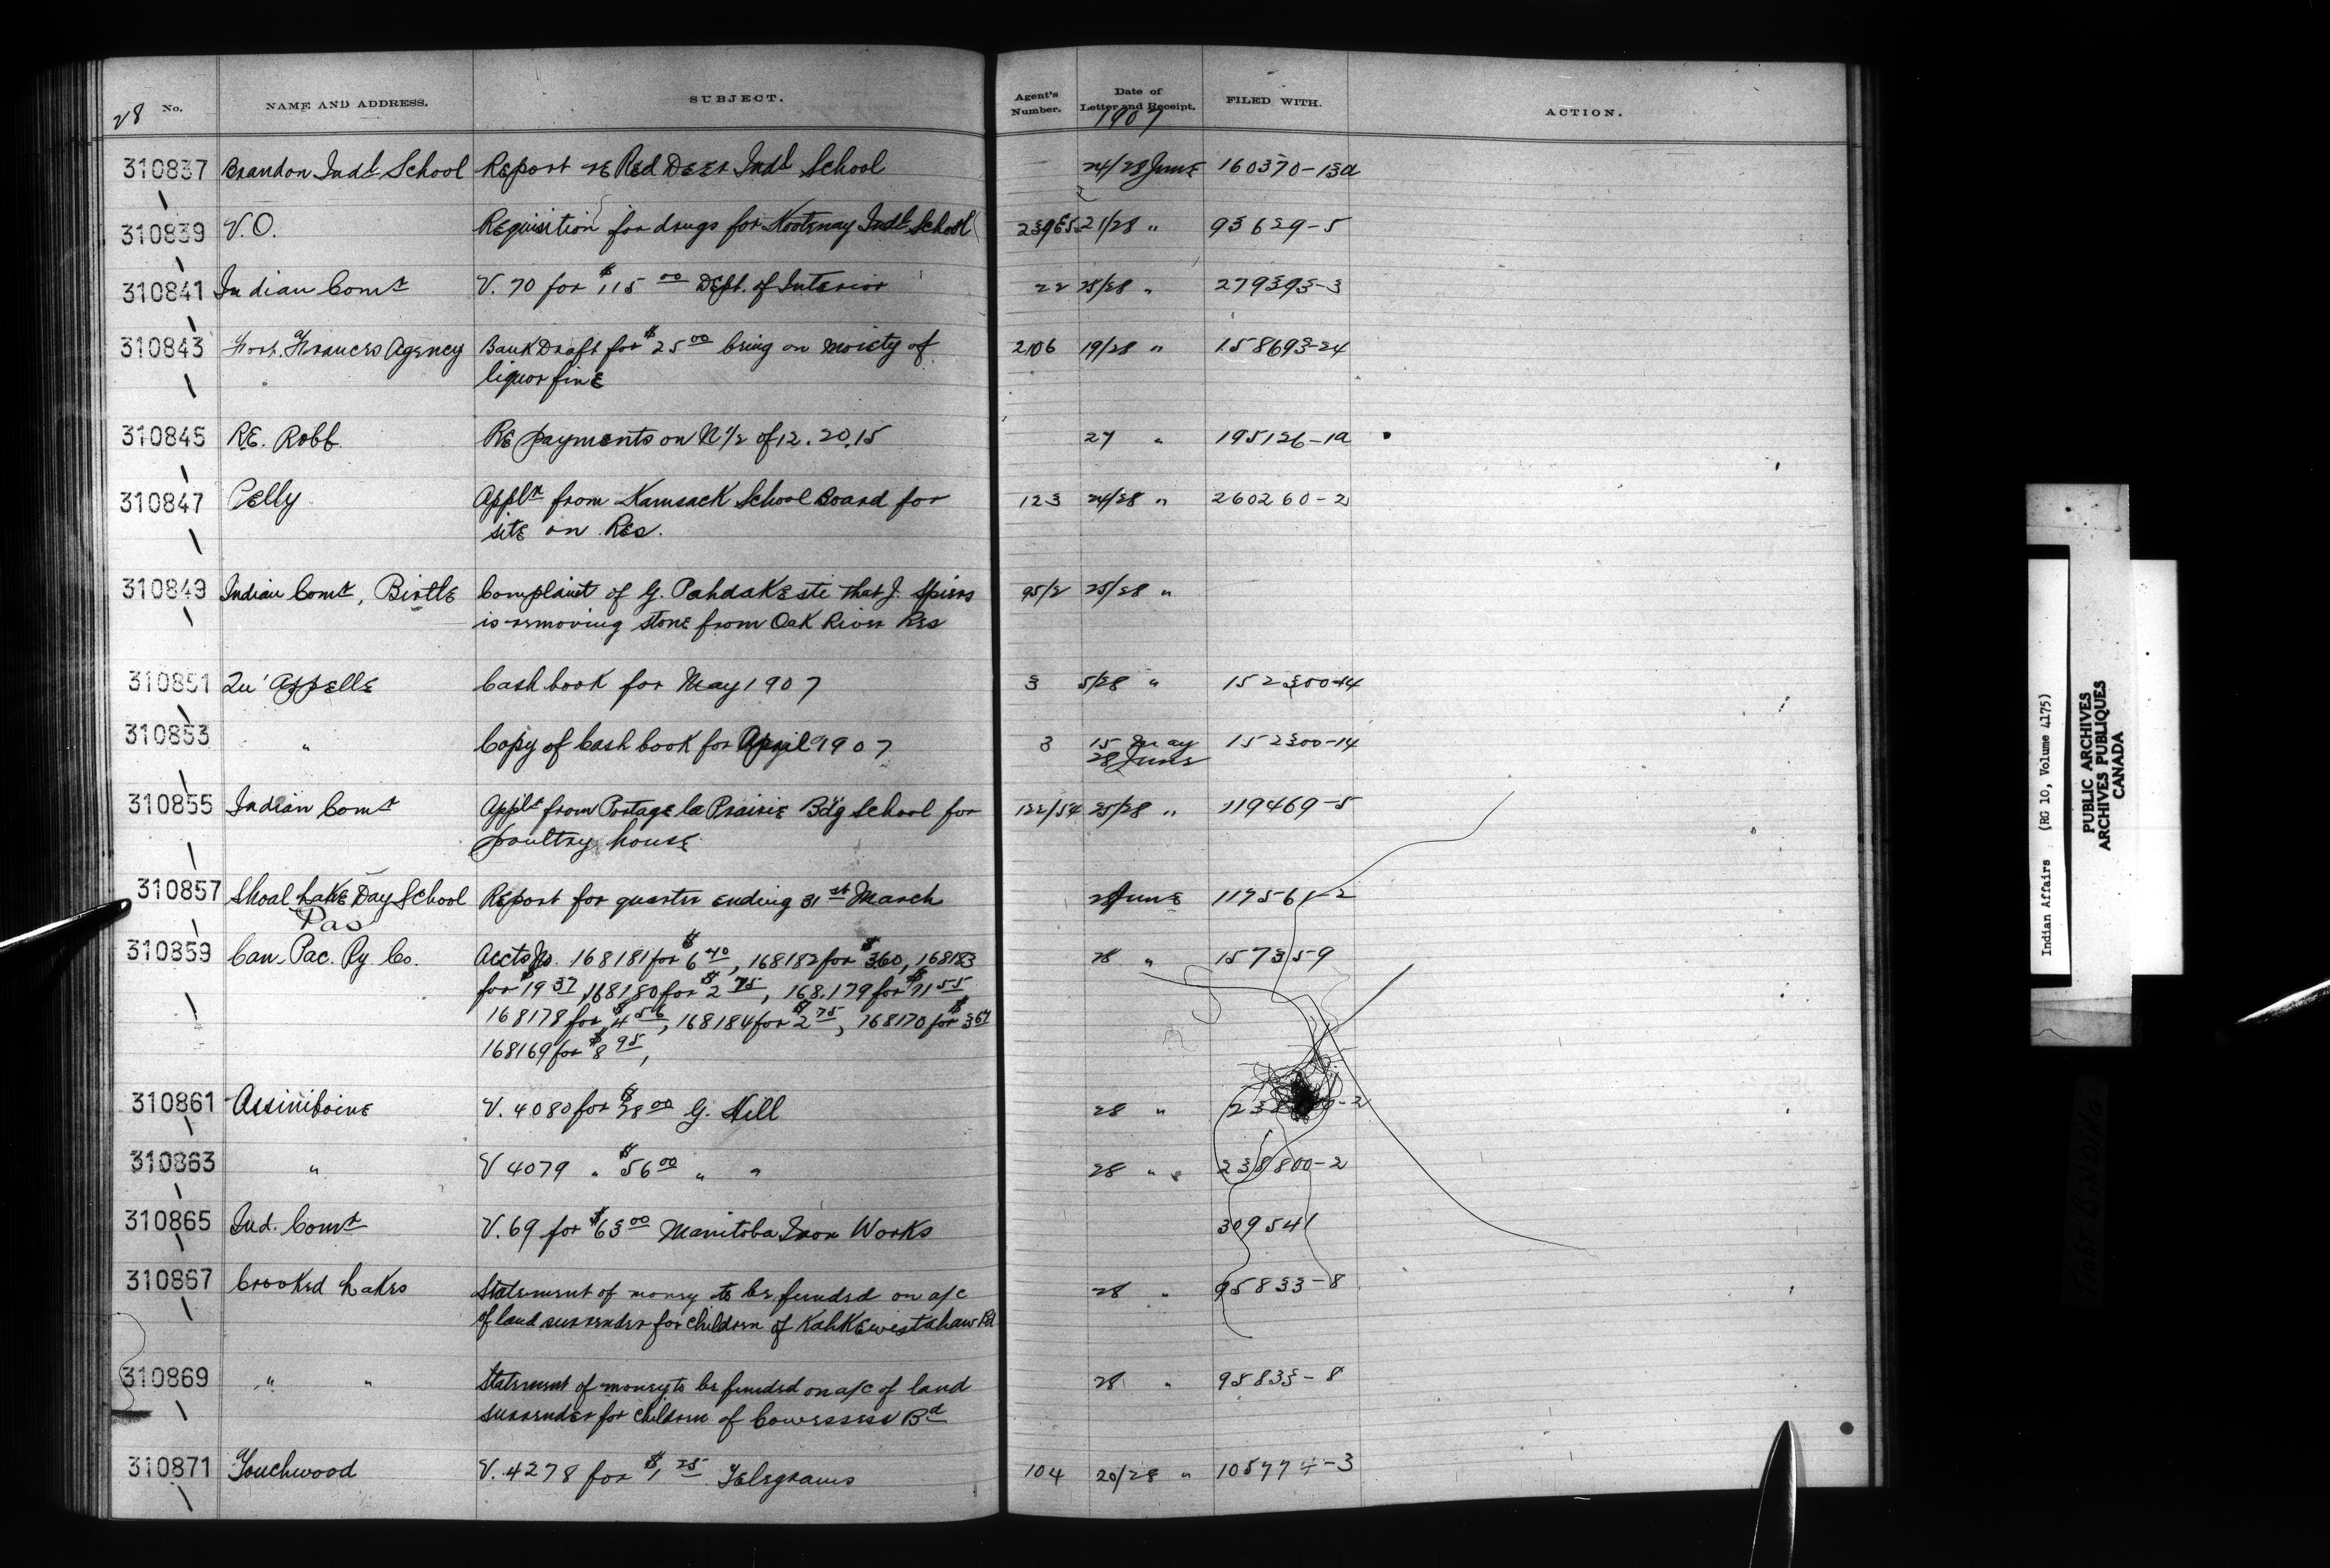 28 No. NAME AND ADDRESS. SUBJECT. Agent's Number. Date of Letter and Receipt. 1907 FILED WITH. ACTION.
310837 Brandon Indl School Report re Red Deer Indl School 24/28 June 160370-13a
310839 V.O. Requisition for drugs for Kootenay Indl School 23965 21/28 " 93629-5
310841 Indian Comr V. 70 for $115 00 Dept. of Interior 22 25/28 " 279393-3
310843 Fort Frances Agency Bank Draft for $25 00 being on moiety of 2106 19/28 " 158693-24
liquor fine
310845 RE. Robb. Re payments on N 1/2 of 12.20.15 27 " 195126-1a
310847 Pelly Appln from Kamsack School Board for 123 24/28 " 260260-2
site on Res.
310849 Indian Comr, Birtle Complaint of G. Pahdakeste that J. Spiers 95/2 25/28 "
is removing stone from Oak River Res
310851 Qu'Appelle Cash book for May 1907 3 5/28 " 152300-14
310853 " Copy of Cash book for April 1907 3 15 May 152300-14
28 June
310855 Indian Comr Applt from Portage la Prairie Bdg School for 122/54 25/28 " 119469-5
poultry house
310857 Shoal Lake Day School Report for quarter ending 31st March 28 June 117561-2
Pas
310859 Can. Pac. Ry. Co. Accts No. 168181 for $6 40, 168182 for $360, 168183 28 " 157359
for $19 37, 168180 for $2 75, 168.179 for $11 55
168178 for $4 56, 168184 for $2 75, 168170 for $3 67
168169 for $8 95,
310861 Assiniboine V. 4080 for $28 00 G. Hill 28 "
310863 " V 4079 " $56 00 " " 28 " 238800-2
310865 Ind. Comr V. 69 for $63 00 Manitoba Iron Works 309541
310867 Crooked Lakes Statement of money to be funded on a/c 28 " 95833-8
of land surrender for children of Kahkewistahaw Bd
310869 " " Statement of money to be funded on a/c of land 28 " 95833-8
surrender for children of Cowessess Bd
310871 Touchwood V. 4278 for $1 25 Telegrams 104 20/28 " 105774-3
Indian Affairs (RG 10, Volume 4175)
PUBLIC ARCHIVES
ARCHIVES PUBLIQUES
CANADA